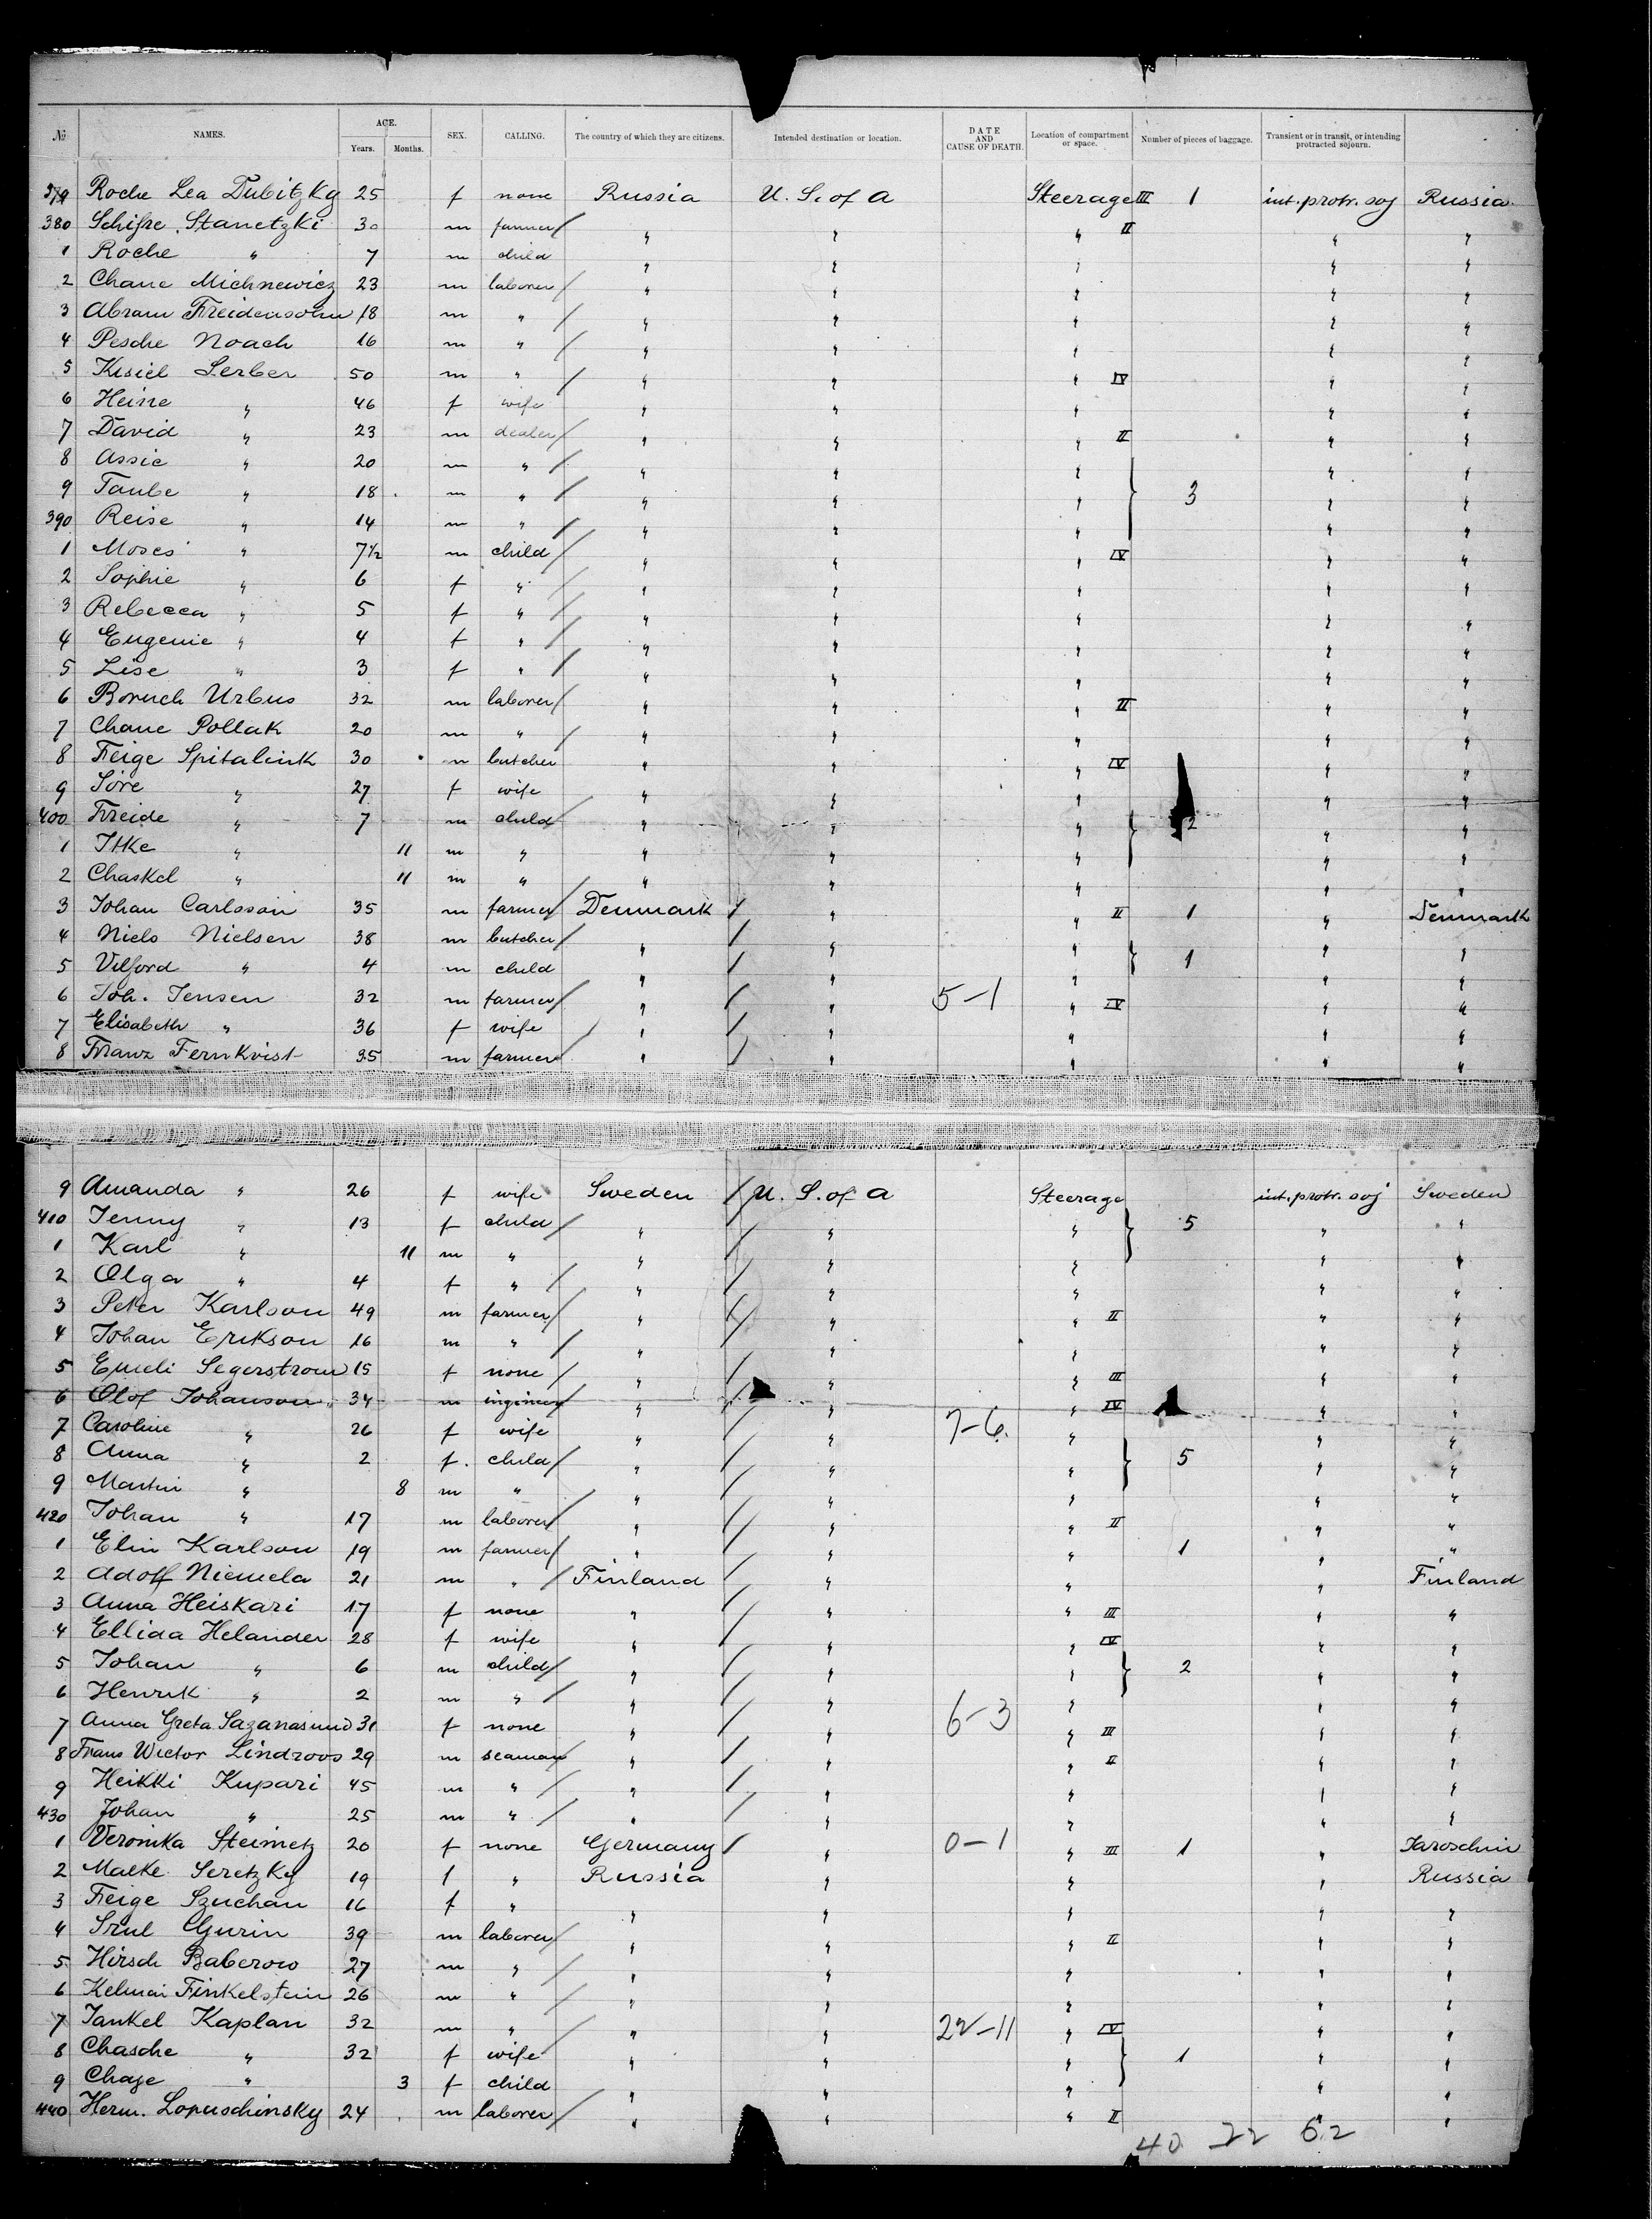 № NAMES. AGE. Years. Months. SEX. CALLING. The country of which they are citizens. Intended destination or location. DATE AND CAUSE OF DEATH. Location of compartment or space. Number of pieces of baggage. Transient or in transit, or intending protracted sojourn.
379 Roche Lea Dubitzky 25 f none Russia U. S. of A Steerage III 1 int. protr. soj Russia
380 Schifre Stanetzki 30 m farmer " " " II " "
1 Roche " 7 m child " " " " "
2 Chane Michnewicz 23 m laborer " " " " "
3 Abram Freidensohn 18 m " " " " " "
4 Pesche Noach 16 m " " " " " "
5 Kisiel Serber 50 m " " " " IV " "
6 Heine " 46 f wife " " " " "
7 David " 23 m dealer " " " II " "
8 Assie " 20 m " " " " " "
9 Taube " 18 m " " " " 3 " "
390 Reise " 14 m " " " " " "
1 Moses " 7½ m child " " " IV " "
2 Sophie " 6 f " " " " " "
3 Rebecca " 5 f " " " " " "
4 Eugenie " 4 f " " " " " "
5 Lise " 3 f " " " " " "
6 Boruch Urbus 32 m laborer " " " II " "
7 Chane Pollak 20 m " " " " " "
8 Feige Spitalink 30 m butcher " " " IV " "
9 Sore " 27 f wife " " " " "
400 Freide " 7 m child " " " 2 " "
1 Itke " 11 m " " " " " "
2 Chaskel " 11 m " " " " " "
3 Johan Carlsson 35 m farmer Denmark " " II 1 " Denmark
4 Niels Nielsen 38 m butcher " " " " "
5 Vilford " 4 m child " " " 1 " "
6 Joh. Jensen 32 m farmer " " 5-1 " IV " "
7 Elisabeth " 36 f wife " " " " "
8 Franz Fernkvist 35 m farmer " " " " "
9 Amanda " 26 f wife Sweden U. S. of A Steerage int. protr. soj Sweden
410 Jenny " 13 f child " " " 5 " "
1 Karl " 11 m " " " " " "
2 Olga " 4 f " " " " " "
3 Peter Karlson 49 m farmer " " " II " "
4 Johan Erikson 16 m " " " " " "
5 Emeli Segerstrom 15 f none " " " III " "
6 Olof Johanson 34 m ingineer " " " IV " "
7 Caroline " 26 f wife " " 7-6. " " "
8 Anna " 2 f. child " " " 5 " "
9 Martin " 8 m " " " " " "
420 Johan " 17 m laborer " " " II " "
1 Elin Karlson 19 m farmer " " " 1 " "
2 Adolf Niemela 21 m " Finland " " " Finland
3 Anna Heiskari 17 f none " " " III " "
4 Ellida Helander 28 f wife " " " IV " "
5 Johan " 6 m child " " " 2 " "
6 Henrik " 2 m " " " " " "
7 Anna Greta 31 f none " " 6-3 " III " "
8 Frans Wictor Lindroos 29 m seaman " " " II " "
9 Heikki Kupari 45 m " " " " " "
430 Johan " 25 m " " " " " "
1 Veronika Steimetz 20 f none Germany " 0-1 " III 1 " Jaroschin
2 Malke Seretzky 19 f " Russia " " " Russia
3 Feige Szuchan 16 f " " " " " "
4 Srul Gurin 39 m laborer " " " II " "
5 Hirsch Baberow 27 m " " " " " "
6 Kelman Finkelstein 26 m " " " " " "
7 Jankel Kaplan 32 m " " " 22-11 " IV " "
8 Chasche " 32 f wife " " " 1 " "
9 Chaje " 3 f child " " " " "
440 Herm. Lopuschinsky 24 m laborer " " " II " "
40 22 62